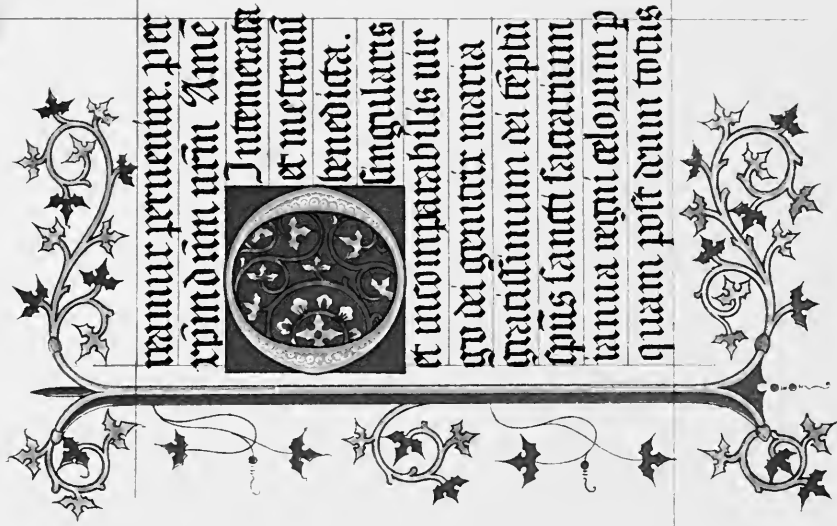 reamur peruenire. per
xpm̄ dn̄m nr̄m Amē
O Intemerata
et ineternū
benedicta.
singularis
et incomparabilis uir
go dei genitrix maria
gratissimum dei tēplū
sp̄us sancti sacrarium
ianua regni celorum p
quam post deum totus